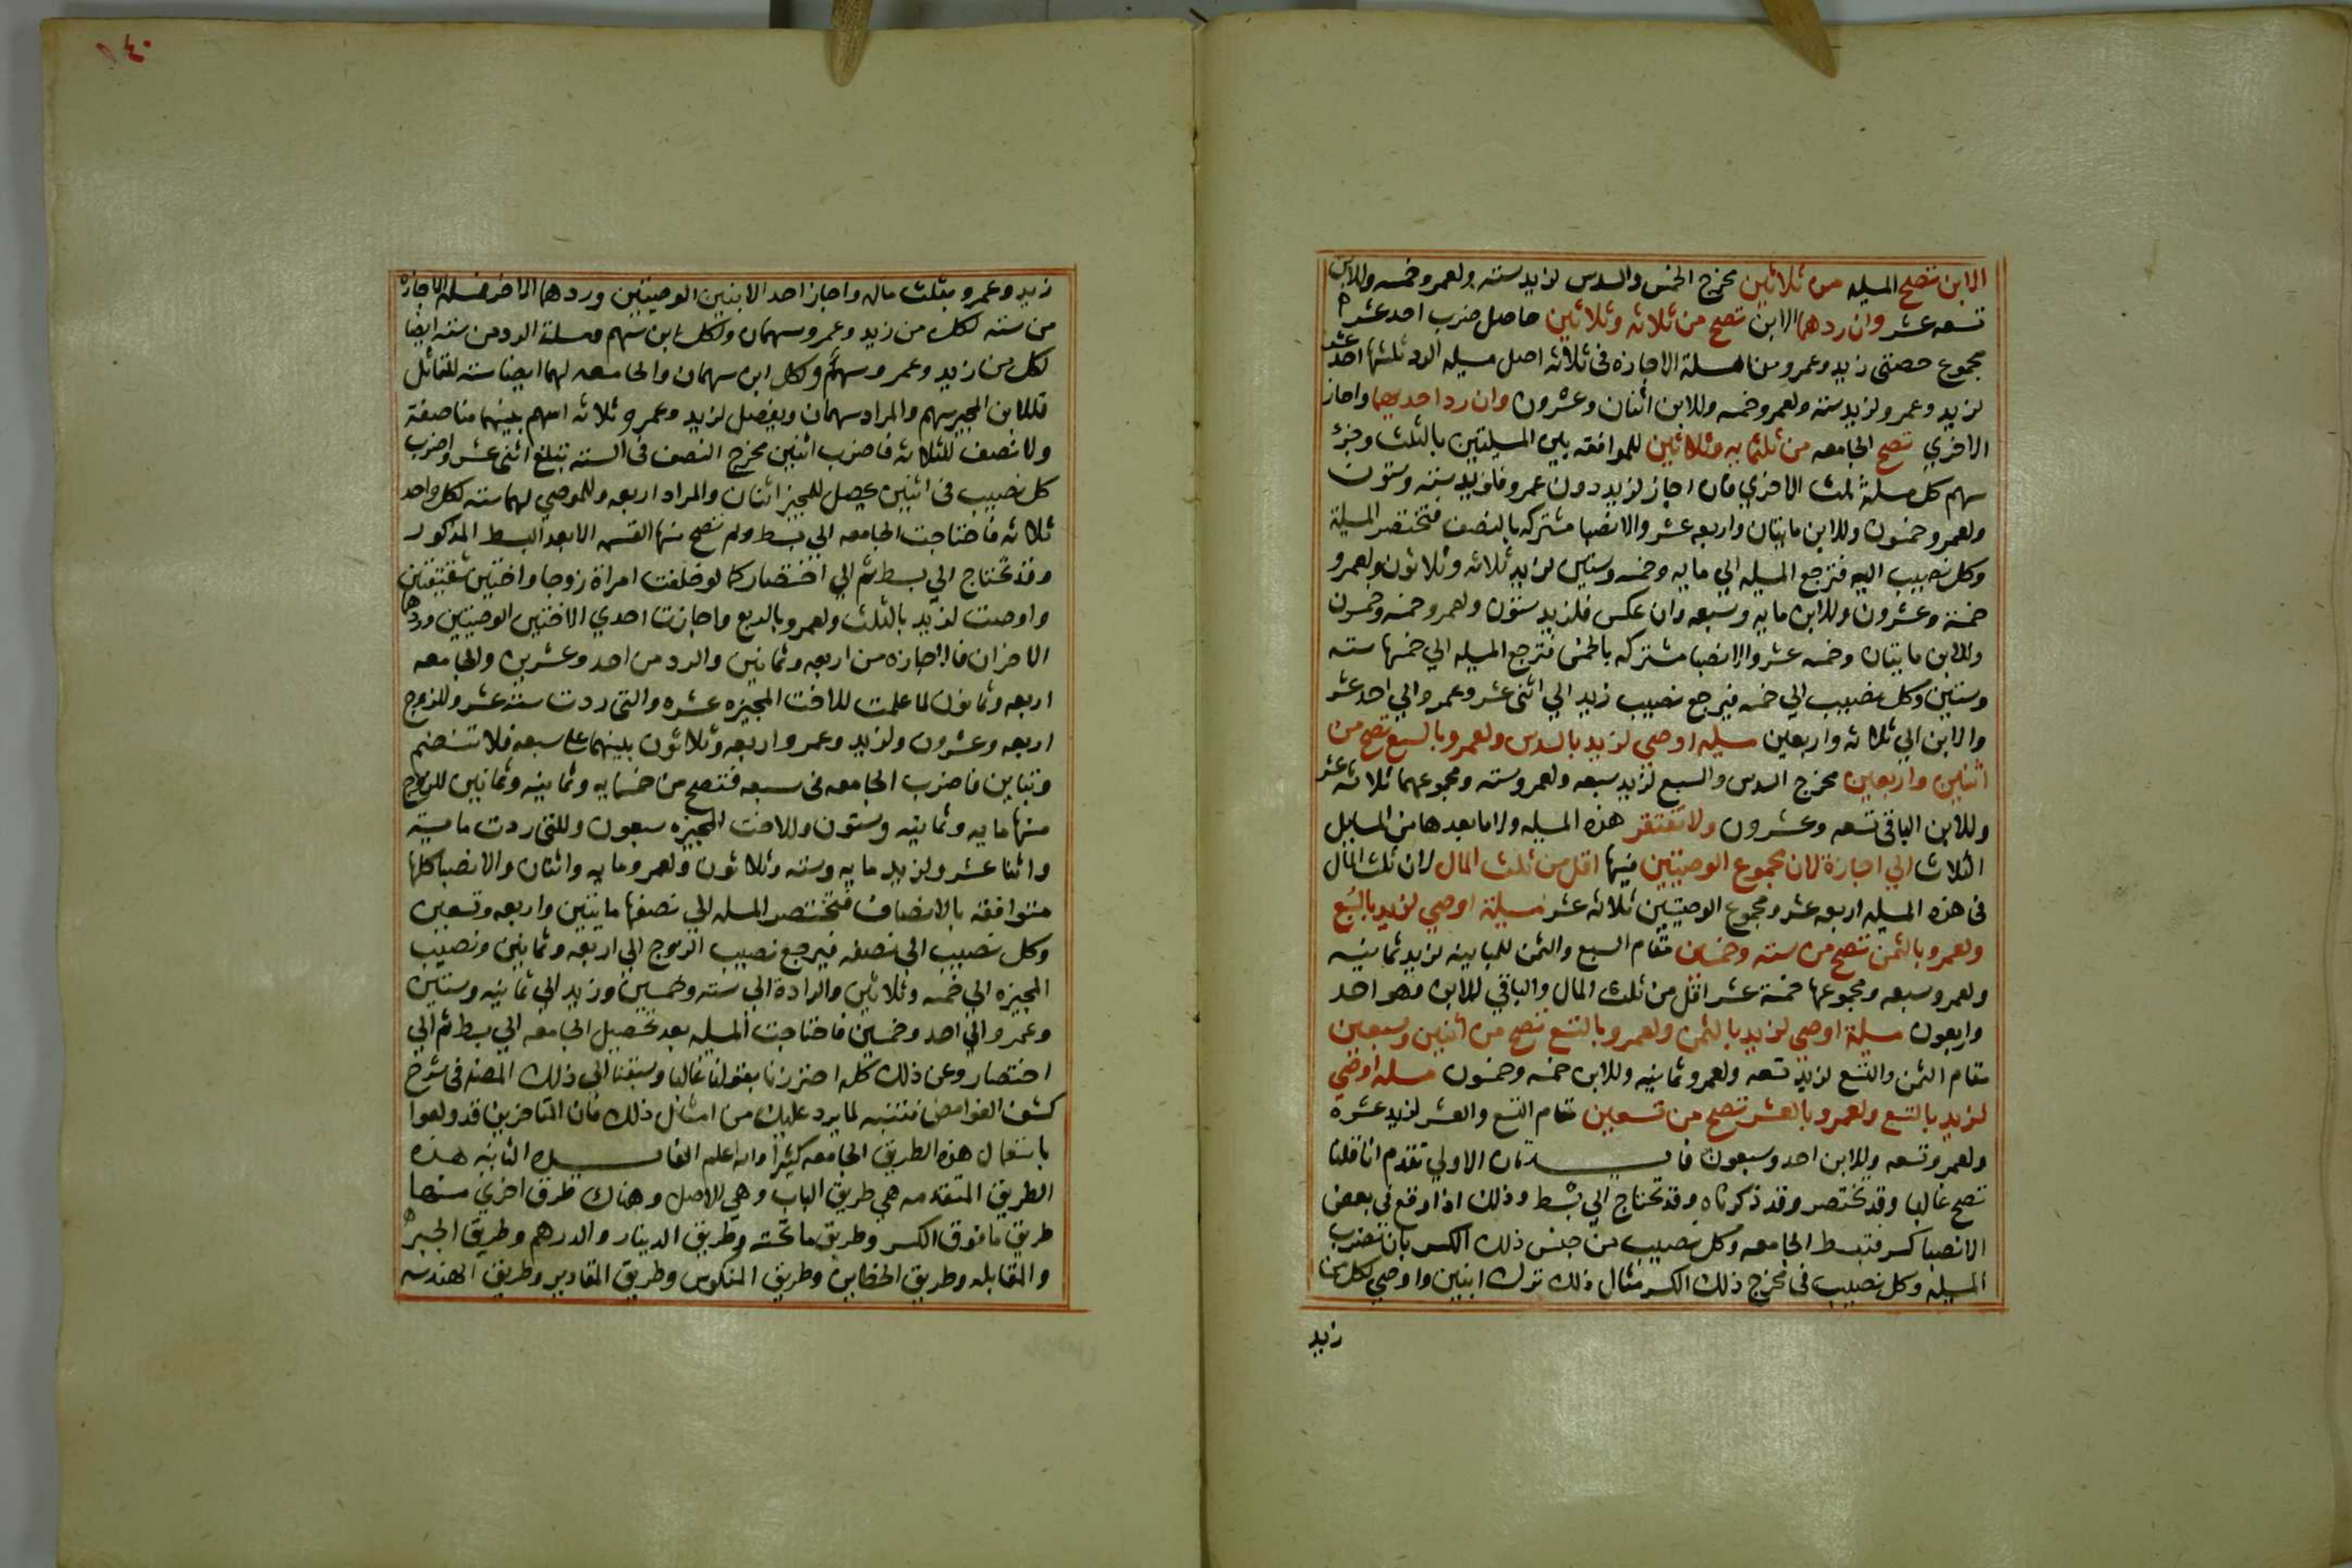 الابن تصح المسله من ثلاثين مخرج الخمس والسدس لزيد سته ولعمرو خمسه وللابن
تسعه عشر وان ردهما الابن تصح من ثلاثه وثلاثين حاصل ضرب احد عشر
مجموع حصتي زيد وعمرو من مسلة الاجازه في ثلاثه اصل مسله الرد ثلثها احد عشر
لزيد وعمرو لزيد سته ولعمرو خمسه وللابن اثنان وعشرون وان رد احديهما واجاز
الاخري تصح الجامعه من ثلثمايه وثلاثين للموافقه بين المسلتين بالثلث وجزء
سهم كل مسلة ثلث الاخري فان اجاز لزيد دون عمرو فلزيد سته وستون
ولعمرو خمسون وللابن مايتان واربعه عشر والانصبا مشتركه بالنصف فتختصر المسلة
وكل نصيب اليه فترجع المسله الي مايه وخمسه وستين لزيد ثلاثه وثلاثون ولعمرو
خمسة وعشرون وللابن مايه وسبعه وان عكس فلزيد ستون ولعمرو خمسه وخمسون
وللابن مايتان وخمسه عشر والانصبا مشتركه بالخمس فترجع المسله الي خمسها سته
وستين وكل نصيب الي خمسه فيرجع نصيب زيد الي اثني عشر وعمرو الي احد عشر
والابن الي ثلاثه واربعين مسله اوصي لزيد بالسدس ولعمرو بالسبع تصح من
اثنين واربعين مخرج السدس والسبع لزيد سبعه ولعمرو سته ومجموعهما ثلاثه عشر
وللابن الباقي تسعه وعشرون ولا تفتقر هذه المسله ولا ما بعدها من المسايل
الثلاث الي اجازة لان مجموع الوصيتين فيها اقل من ثلث المال لان ثلث المال
في هذه المسله اربعه عشر ومجموع الوصيتين ثلاثه عشر مسيلة اوصي لزيد بالسُبع
ولعمرو بالثمن تصح من سته وخمسين مقام السبع والثمن للمباينه لزيد ثمانيه
ولعمرو سبعه ومجموعها خمسة عشر اقل من ثلث المال والباقي للابن وهو احد
واربعون مسيلة اوصي لزيد بالثمن ولعمرو بالتسع تصح من اثنين وسبعين
مقام الثمن والتسع لزيد تسعه ولعمرو ثمانيه وللابن خمسه وخمسون مسله اوصي
لزيد بالتسع ولعمرو بالعشر تصح من تسعين مقام التسع والعشر لزيد عشره
ولعمرو تسعه وللابن احد وسبعون فايــدتان الاولي تقدم انا قلنا
تصح غالبا وقد تختصر وقد ذكرناه وقد تحتاج الي بسط وذلك اذا وقع في بعض
الانصبا كسر فتبسط الجامعه وكل نصيب من جنس ذلك الكسر بان تضرب
المسيله وكل نصيب في مخرج ذلك الكسر مثال ذلك ترك ابنين واوصي لكل من
زيد
١٤٠
زيد وعمرو بثلث ماله واجاز احد الابنين الوصيتين وردهما الاخر فمسلة الاجازه
من سته لكل من زيد وعمرو سهمان ولكل ابن سهم ومسلة الرد من سته ايضا
لكل من زيد وعمرو سهم ولكل ابن سهمان والجامعه لهما ايضا سته للتماثل
فللابن المجيز سهم والراد سهمان ويفضل لزيد وعمرو ثلاثه اسهم بينهما مناصفة
ولا نصف للثلاثه فاضرب اثنين مخرج النصف في السته تبلغ اثني عشر واضرب
كل نصيب في اثنين يحصل للمجيز اثنان والراد اربعه وللموصي لهما سته لكل واحد
ثلاثه فاحتاجت الجامعه الي بسط ولم تصح منها القسمه الا بعد البسط المذكور
وقد تحتاج الي بسط ثم الي اختصار كما لو خلفت امراة زوجا واختين شقيقتين
واوصت لزيد بالثلث ولعمرو بالربع واجازت احدي الاختين الوصيتين وردها
الاخران فالاجازه من اربعه وثمانين والرد من احد وعشرين والجامعه
اربعه وثمانون لما علمت للاخت المجيزه عشره والتي ردت سته عشر وللزوج
اربعه وعشرون ولزيد وعمرو اربعه وثلاثون بينهما علي سبعه فلا تنقسم
وتباين فاضرب الجامعه في سبعه فتصح من خمسمايه وثمانيه وثمانين للزوج
منها مايه وثمانيه وستون وللاخت المجيزه سبعون وللتي ردت مايه
واثنا عشر ولزيد مايه وسته وثلاثون ولعمرو مايه واثنان والانصبا كلها
متوافقه بالانصاف فتختصر المسله الي نصفها مايتين واربعه وتسعين
وكل نصيب الي نصفه فيرجع نصيب الزوج الي اربعه وثمانين ونصيب
المجيزه الي خمسه وثلاثين والرادة الي سته وخمسين وزيد الي ثمانيه وستين
وعمرو الي احد وخمسين فاحتاجت المسله بعد تحصيل الجامعه الي بسط ثم الي
اختصار وعن ذلك كله احترزنا بقولنا غالبا وسبقنا الي ذلك المصنف في شرح
كشف الغوامض فتنبه لما يرد عليك من امثال ذلك فان المتاخرين قد ولعوا
باستعمال هذه الطريق الجامعه كثيرا والله اعلم الفايــده الثانيه هذه
الطريق المتقدمه هي طريق الباب وهي الاصل وهناك طرق اخري منها
طريق ما فوق الكسر وطريق ما تحته وطريق الدينار والدرهم وطريق الجبر
والمقابله وطريق الخطاين وطريق المنكوس وطريق المقادير وطريق الهندسه